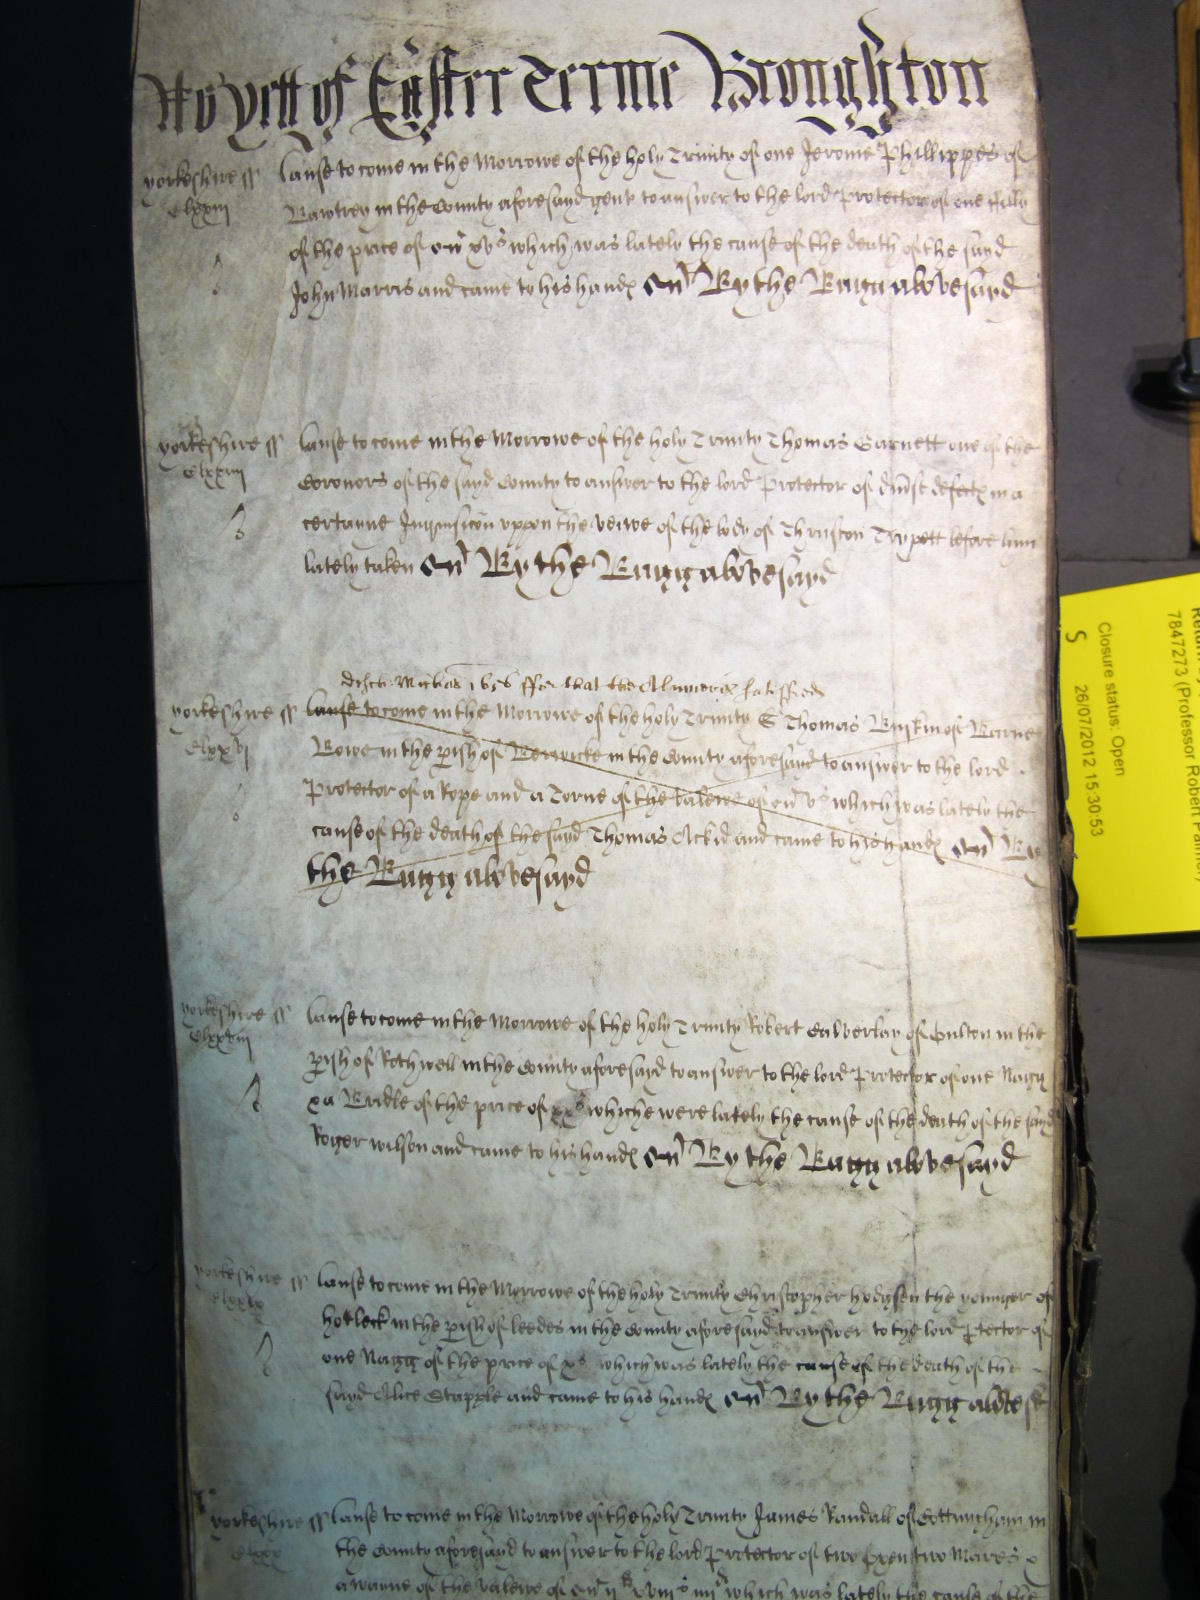 As yett of Easter Terme Broughton
yorkeshire ss Cause to come in the Morrowe of the holy Trinity of one Jerome Phillippes of
Clxxiii Bawtrey in the County aforesayd gent to answer to the lord Protector of one filly
of the price of xvs which was lately the cause of the death of the sayd
John Marris and came to his hands By the Bagg abovesayd
yorkeshire ss Cause to come in the Morrowe of the holy Trinity Thomas Garnett one of the
Clxxiiij Coronors of the sayd County to answer to the lord Protector of divse defects in a
certayne Inquisicon uppon the veiwe of the body of Thruston Trypett before him
lately taken By the Bagg abovesayd
1656 that the
yorkeshire ss Cause to come in the Morrowe of the holy Trinity Thomas of Barne
Clxxvi Bowe in the pish of Berwicke in the County aforesayd to answer to the lord
Protector of a Rope and a Torne of the valewe of vs which was lately the
cause of the death of the sayd Thomas Ackid and came to his hands By
the Bagg abovesayd
yorkeshire ss Cause to come in the Morrowe of the holy Trinity Robert Calverlay of Oulton in the
Clxxviii pish of Rothwell in the County aforesayd to answer to the lord Protector of one Nagg
Bridle of the price of xxs whiche were lately the cause of the death of the sayd
Roger wilson and came to his hands By the Bagg abovesayd
yorkeshire ss Cause to come in the Morrowe of the holy Trinity Christopher hodgson the younger of
Clxxix holbeck in the pish of leedes in the County aforesayd to answer to the lord Ptector of
one Nagg of the price of xs which was lately the cause of the death of the
sayd Alice Stapple and came to his hands By the Bagg
yorkeshire ss Cause to come in the Morrowe of the holy Trinity James Randall of Cottingham in
Clxxx the County aforesayd to answer to the lord Protector of two Oxen two Mares
a wayne of the valewe of which was lately the cause of the
7847273 (Professor Robert Palmer)
Closure status: Open
S 26/07/2012 15:30:53